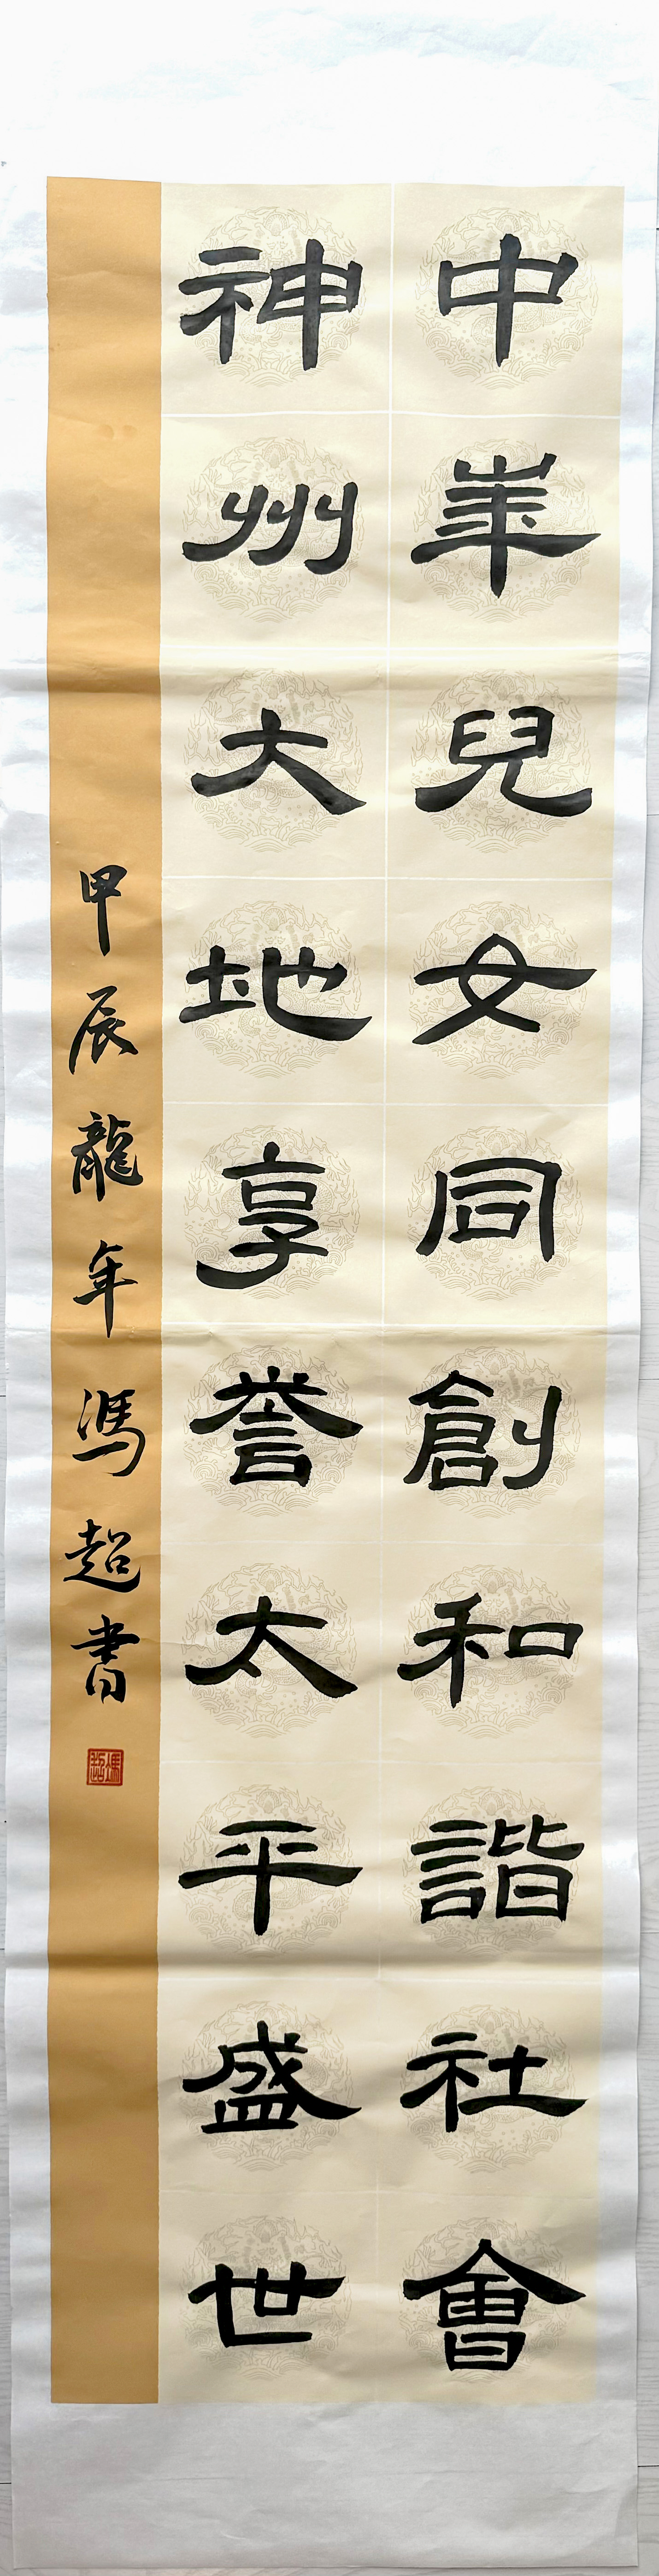 中華兒女同創和諧社會
神州大地享誉太平盛世
甲辰龍年馮超書
馮超